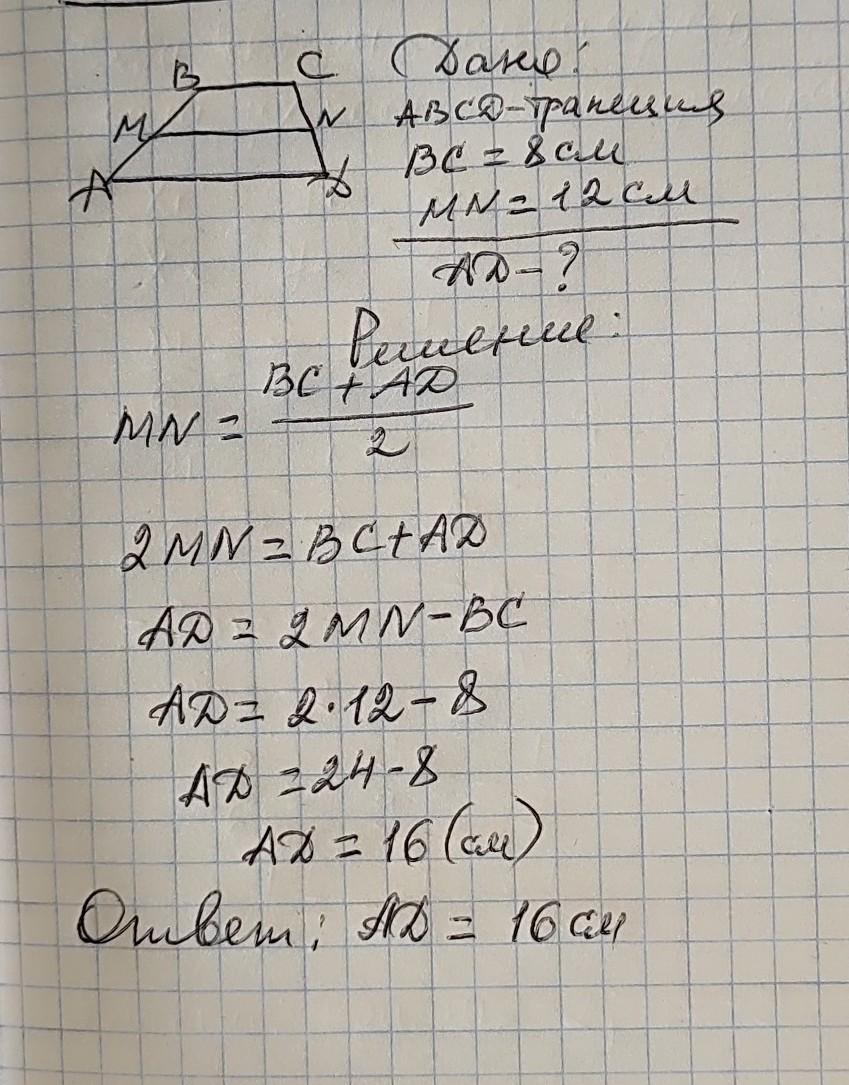 B C
M N
A D
Дано:
ABCD-трапеция
BC = 8 см
MN = 12 см
AD - ?
Решение:
MN = BC + AD / 2
2MN = BC + AD
AD = 2MN - BC
AD = 2·12 - 8
AD = 24 - 8
AD = 16 (см)
Ответ: AD = 16 см